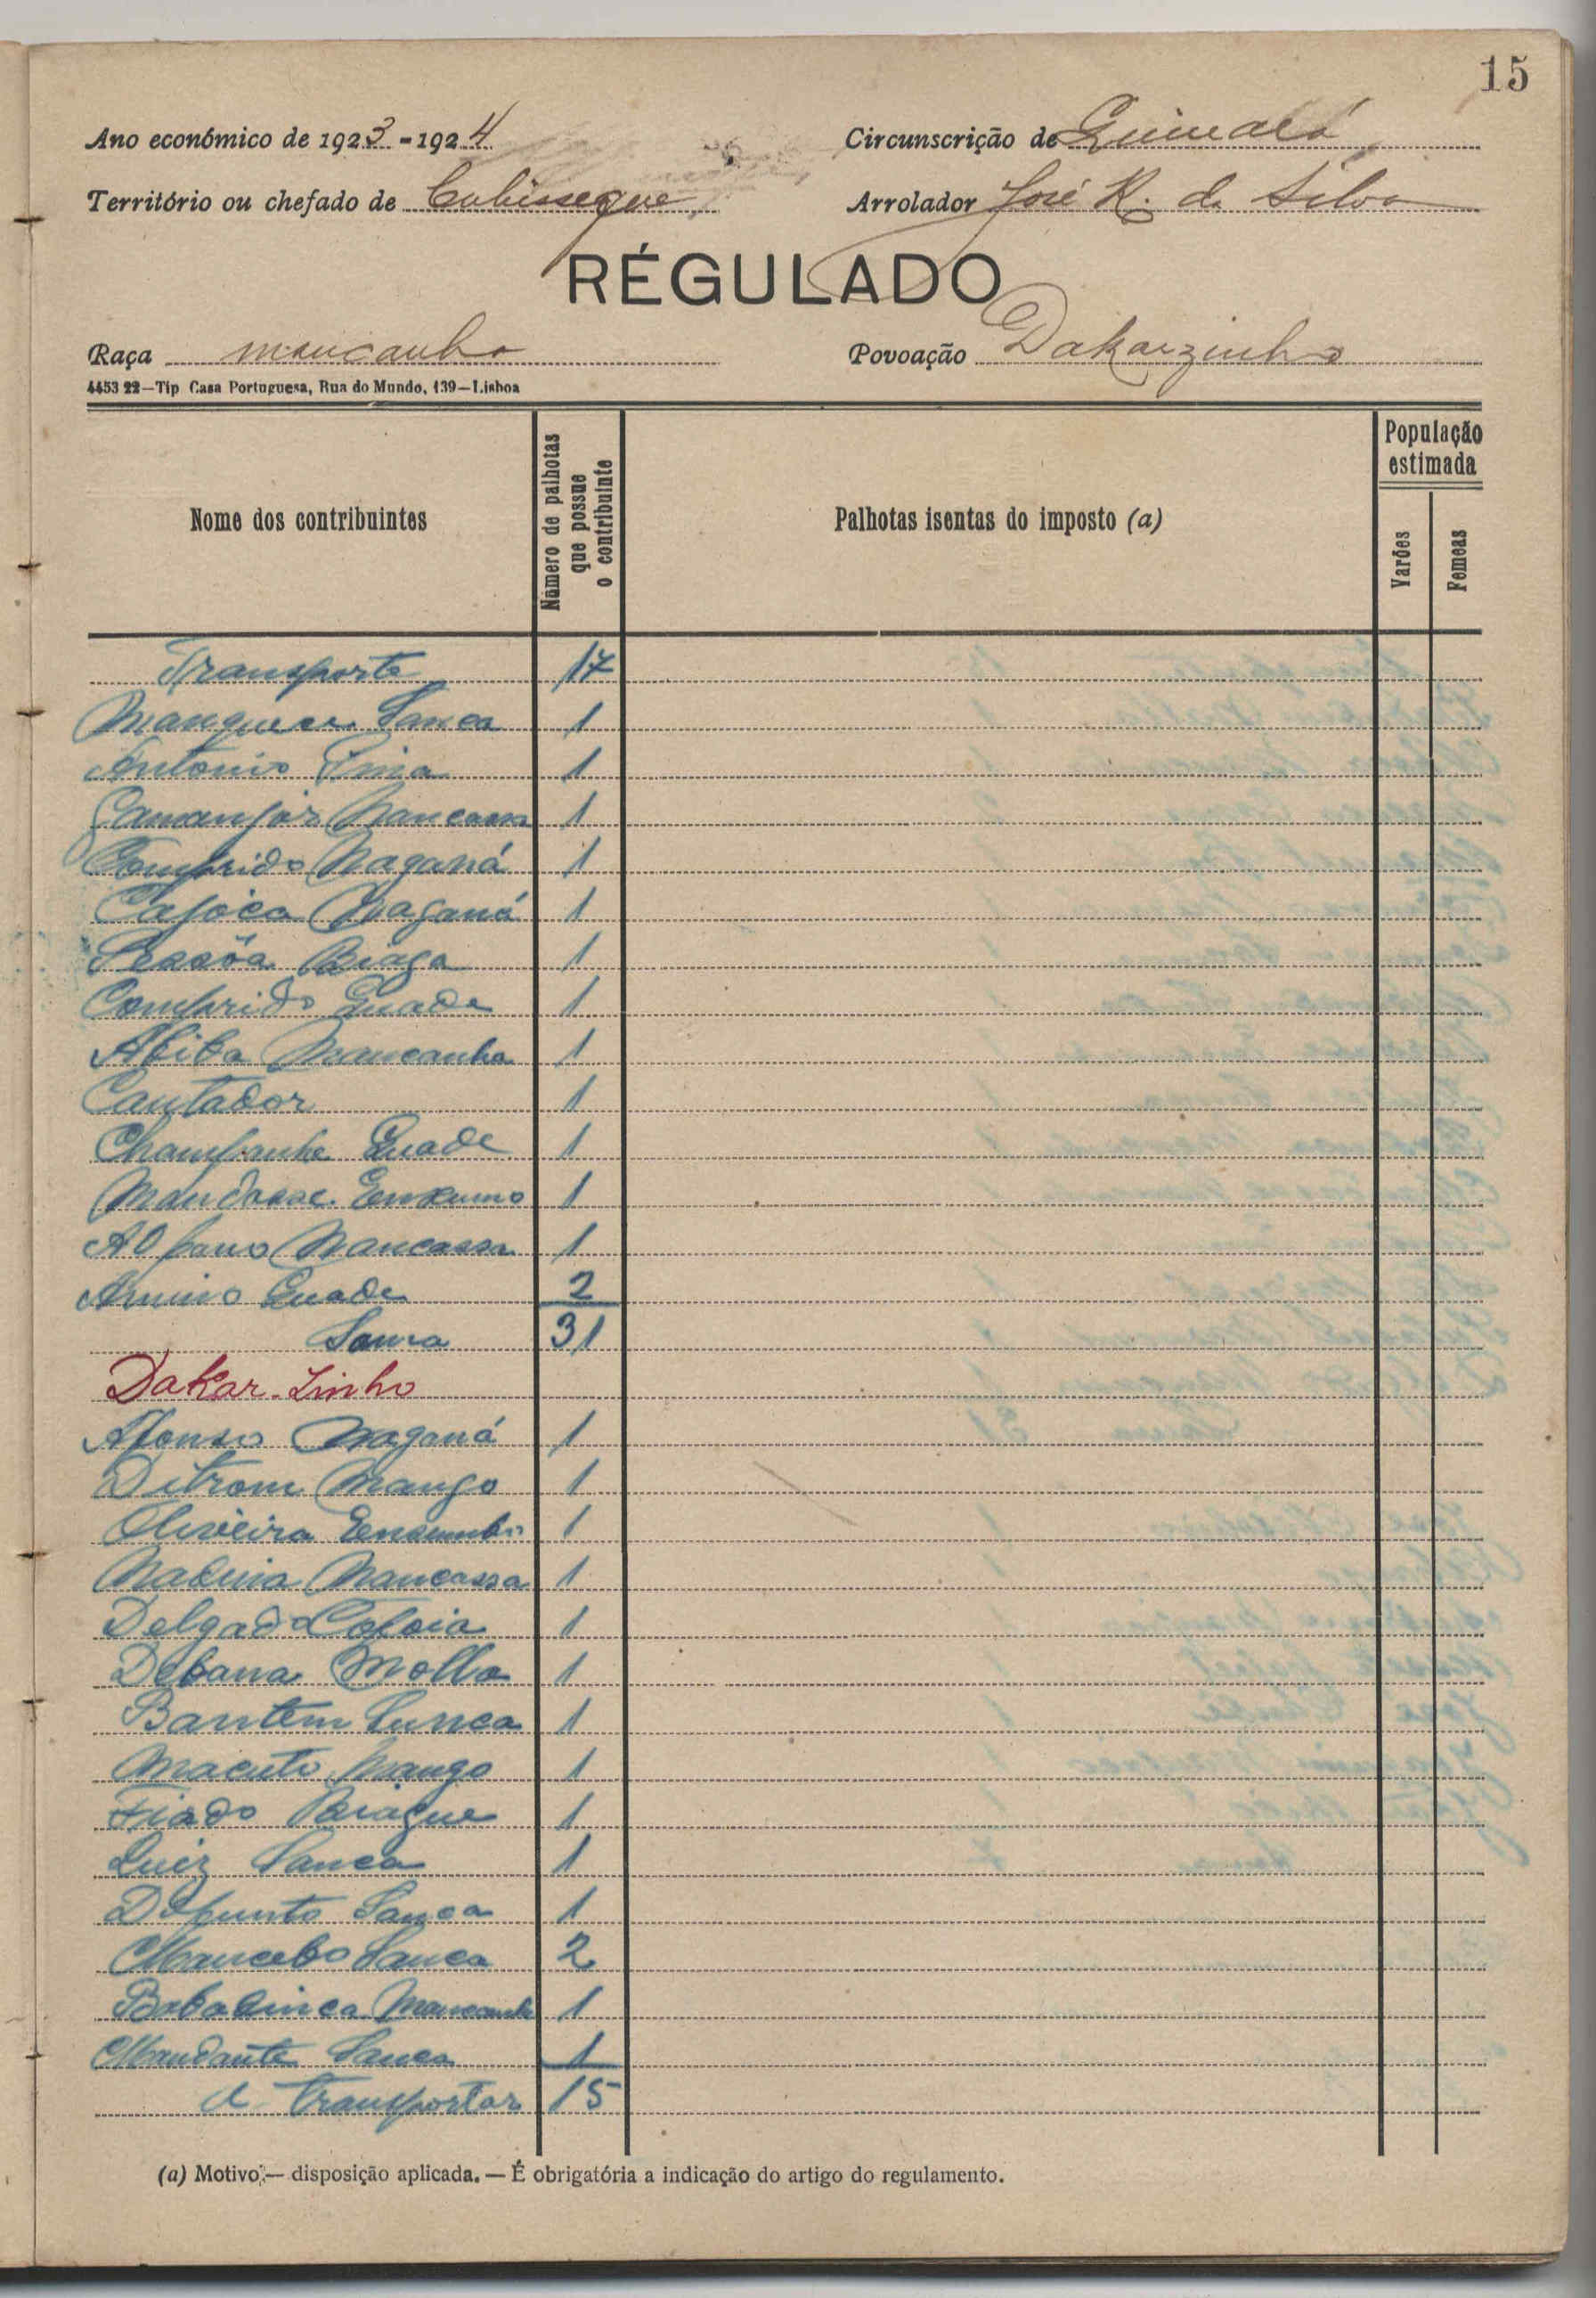 15
Ano económico de 1923-1924 Circunscrição de
Território ou chefado de Cubisseque Arrolador José R. da Silva
RÉGULADO
Raça mancanha Povoação Dakarzinho
4453 22—Tip Casa Portuguesa, Rua do Mundo, 139—Lisboa
Nome dos contribuintes
Número de palhotas que possue o contribuinte
Palhotas isentas do imposto (a)
População estimada
Varões
Femeas
Transporte 17
Sanca 1
Antonio 1
Nancassa 1
Comprido Naganá 1
Cajoica Naganá 1
Pessôa Biaga 1
Comprido Guade 1
Abiba Mancanha 1
Cantador 1
Champanhe Guade 1
1
Nancassa 1
Guade 2
Soma 31
Dakar-Zinho
Afonso Naganá 1
Ditrom Mango 1
Oliveira 1
Nancassa 1
Delgado 1
Debana Molla 1
Bantem Sunca 1
Macuto Mango 1
Fiado Biague 1
Luiz Sanca 1
Defunto Sanca 1
Mancebo Sanca 2
Mancanha 1
Mandante Sanca 1
A transportar 15
(a) Motivo;— disposição aplicada. — É obrigatória a indicação do artigo do regulamento.